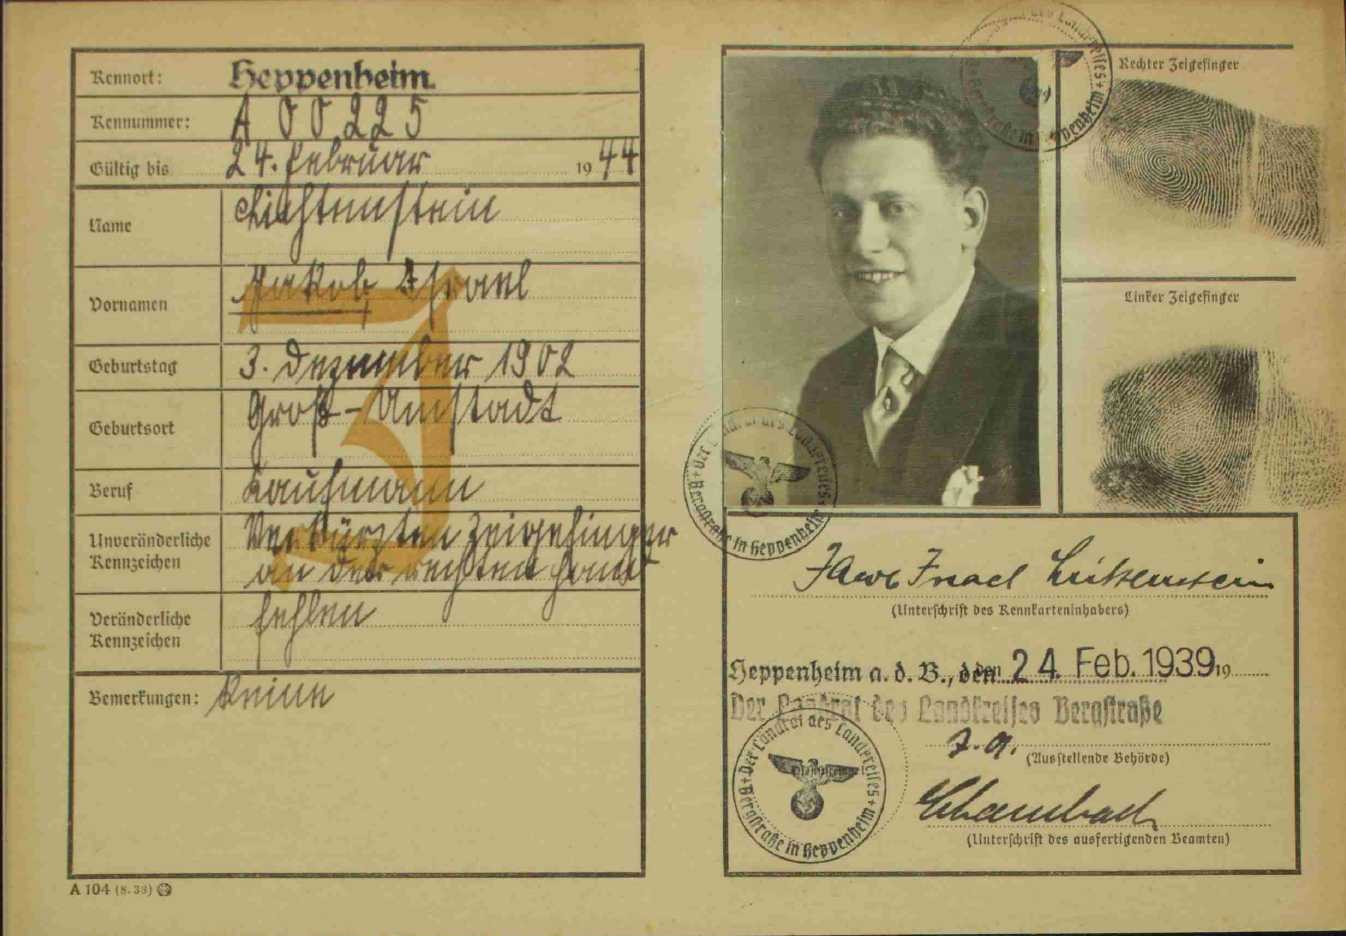 Kennort: Heppenheim.
Kennummer: A 00225
Gültig bis 24. Februar 1944
Name Lichtenstein
Vornamen Jakob Israel
Geburtstag 3. Dezember 1902
Geburtsort Groß-Umstadt
Beruf Kaufmann
Unveränderliche Kennzeichen Verkürzten Zeigefinger
an der rechten Hand
Veränderliche Kennzeichen fehlen
Bemerkungen: Keine
J
A 104 (8. 38)
Rechter Zeigefinger
Linker Zeigefinger
Der Landrat des Landkreises
Bergstraße in Heppenheim
Israel Lichtenstein
(Unterschrift des Kennkarteninhabers)
Heppenheim a. d. B., den 24. Feb. 1939 19
Der Landrat des Landkreises Bergstraße
J. A.
(Ausstellende Behörde)
Der Landrat des Landkreises
Bergstraße in Heppenheim
(Unterschrift des ausfertigenden Beamten)